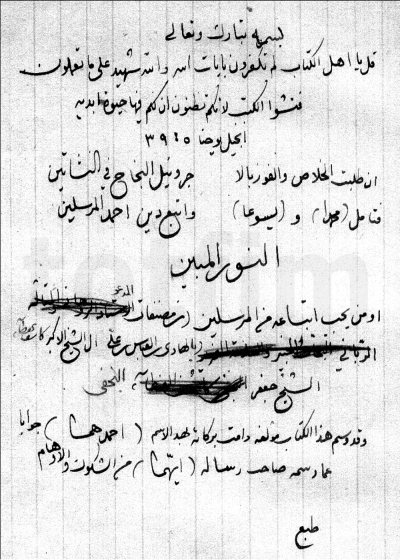 بسمه تبارك وتعالى
قل يا اهل الكتاب لم تكفرون بايات الله والله شهيد على ما تعملون
فتشوا الكتب لانكم تظنون ان لكم فيها حيوة ابدية
انجيل يوحنا ٥ ٣٩
ان طلبت الخلاص والفوز بالا جر ونيل النجاح في النشأتين
فتأمل (محمدا) و (يسوعا) واتبع دين احمد المرسلين
النور المبين
او من يجب اتباعه من المرسلين (من مصنفات المدعو
بالهادي بن العباس بن علي ال الشيخ الاكبر كاشف الغطاء
الشيخ جعفر النجفي
وقد وسم هذا الكتاب مؤلفه دامت بركاته بهذا الاسم (احمدهما) جوابا
عما رسمه صاحب رسالة (ايهما) من الشكوك والاوهام
طبع